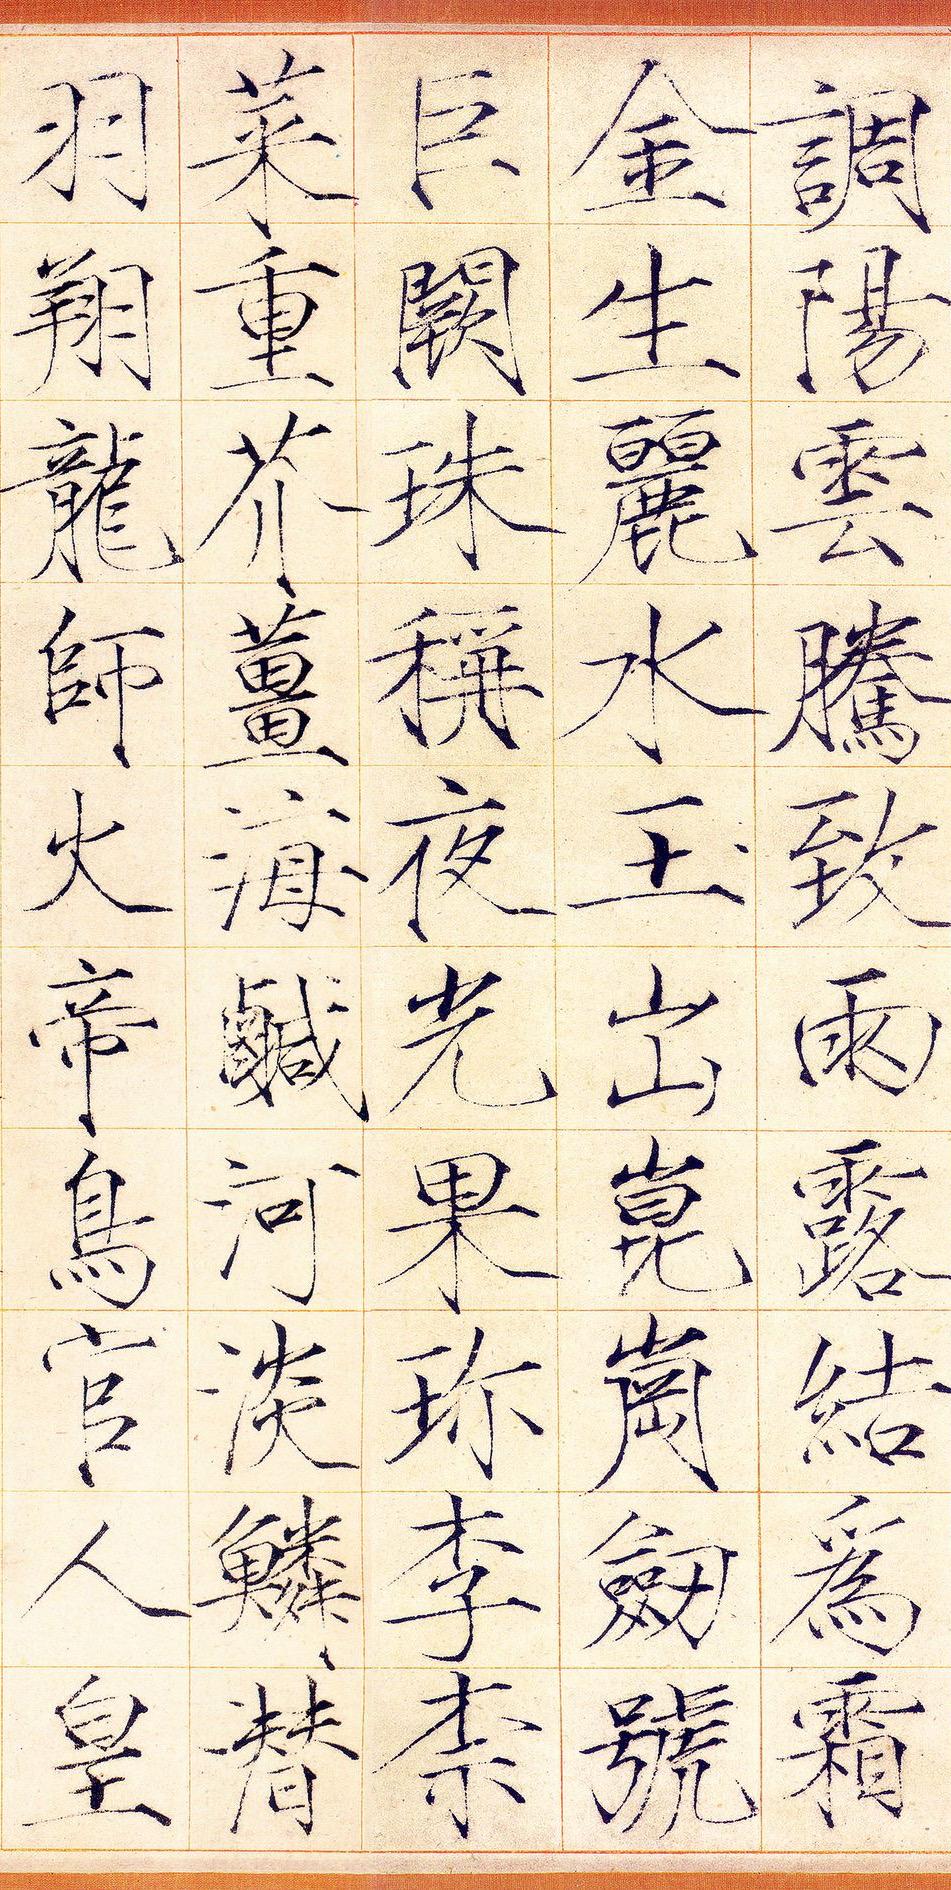 調陽雲騰致雨露結為霜
金生麗水玉出崑崗劒號
巨闕珠稱夜光果珎李柰
菜重芥薑海鹹河淡鱗潛
羽翔龍師火帝鳥官人皇